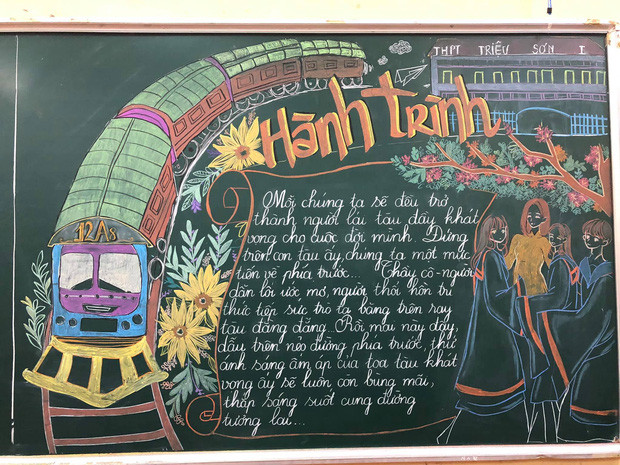 THPT TRIỆU SƠN I
Hành trình
12A8
Mỗi chúng ta sẽ đều trở
thành người lái tàu đầy khát
vọng cho cuộc đời mình. Đứng
trên con tàu ấy, chúng ta một mực
tiến về phía trước... Thầy cô - người
dẫn lối ước mơ, người thổi hồn tri
thức tiếp sức trò ta băng trên ray
tàu đằng đẵng... Rồi mai này đây,
dẫu trên nẻo đường phía trước, thứ
anh sang ấm áp của toa tàu khát
vọng ấy sẽ luôn còn bung mãi,
thắp sáng suốt cung đường
tương lai...